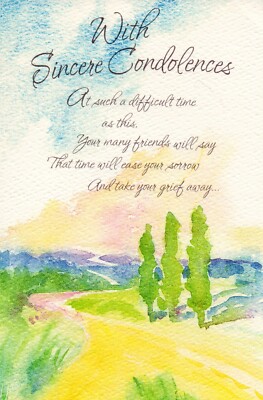 With
Sincere Condolences
At such a difficult time
as this,
Your many friends will say
That time will ease your sorrow
And take your grief away...